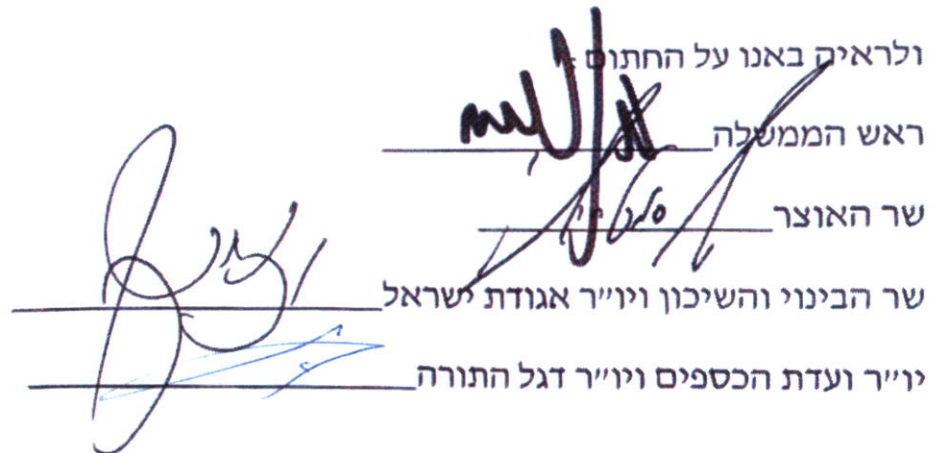 ולראיה באנו על החתום:
ראש הממשלה
שר האוצר
שר הבינוי והשיכון ויו״ר אגודת ישראל
יו״ר ועדת הכספים ויו״ר דגל התורה